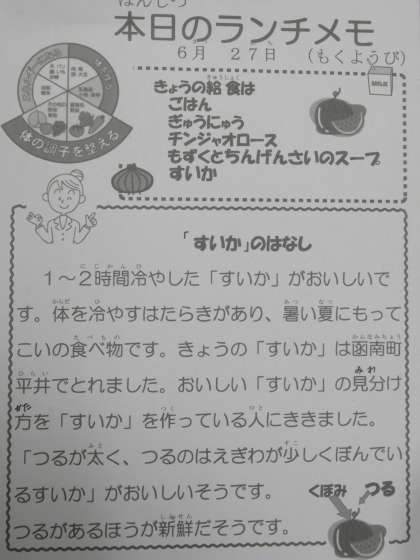 本日のランチメモ
6月 27日 (もくようび)
MILK
体の調子を整える
きょうの給食は
ごはん
ぎゅうにゅう
チンジャオロース
もずくとちんげんさいのスープ
すいか
「すいか」のはなし
1～2時間冷やした「すいか」がおいしいで
す。体を冷やすはたらきがあり、暑い夏にもって
こいの食べ物です。きょうの「すいか」は函南町
平井でとれました。おいしい「すいか」の見分け
方を「すいか」を作っている人にききました。
「つるが太く、つるのはえぎわが少しくぼんでい
るすいか」がおいしいそうです。
つるがあるほうが新鮮だそうです。
くぼみ つる